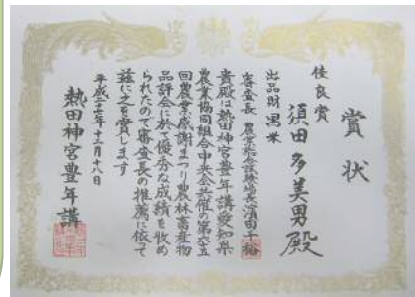 賞状
佳良賞
須田多美男殿
出品財 黒米
審査長 農業総合試験場長 濱田千裕
貴殿は熱田神宮豊年講愛知県
農業協同組合中央会共催の第六十五
回農業感謝まつり農林畜産物
品評会に於て優秀な成績を収め
られたので審査長の推薦に依て
茲に之を賞します
平成二十五年十二月十八日
熱田神宮豊年講